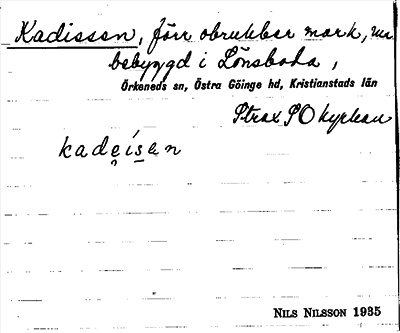 Kadissen, förr obrukbar mark, nu
bebyggd i Lönsboda,
Örkeneds sn, Östra Göinge hd, Kristianstads län
Strax SO kyrkan
kadeísen
NILS NILSSON 1935